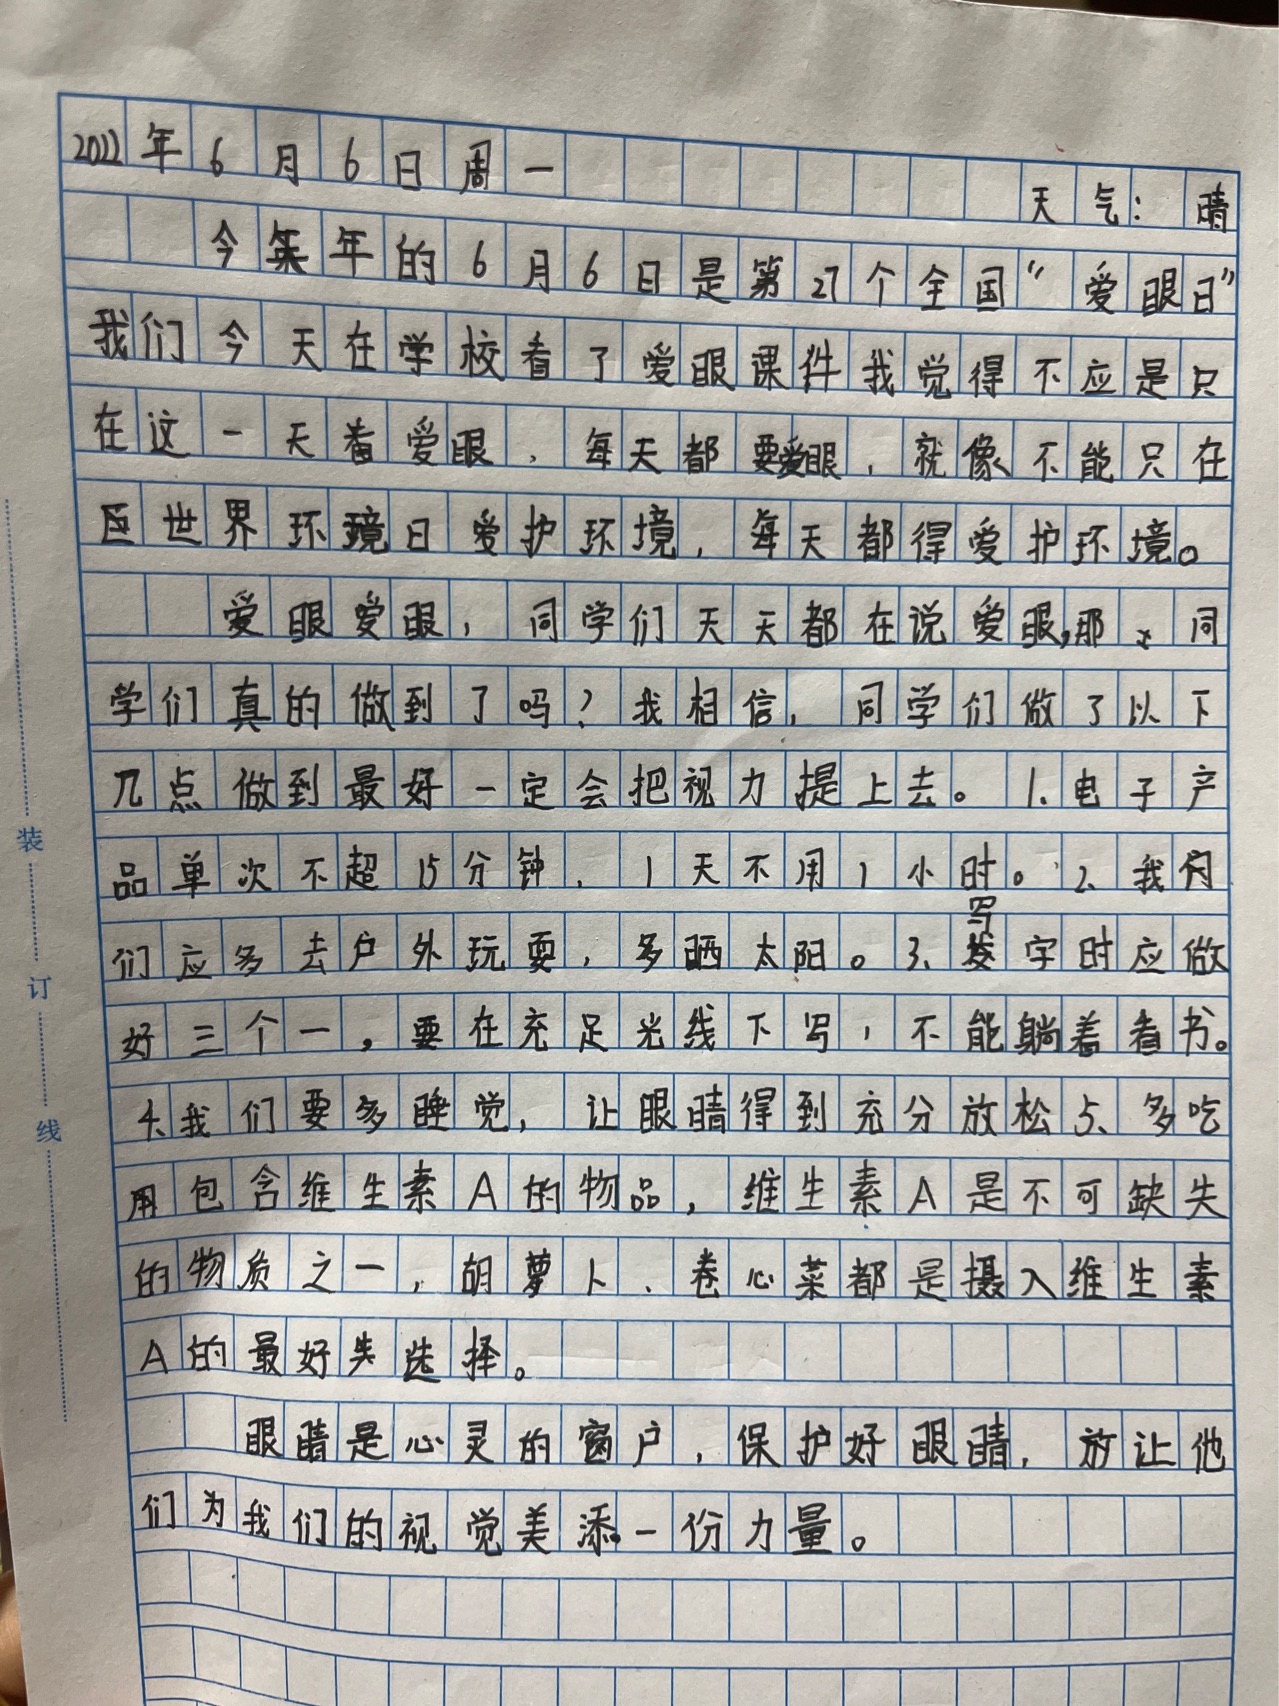 2022年6月6日周一 天气：晴
今年的6月6日是第27个全国“爱眼日”
我们今天在学校看了爱眼课件我觉得不应是只
在这一天看爱眼，每天都要爱眼，就像不能只在
世界环境日爱护环境，每天都得爱护环境。
爱眼爱眼，同学们天天都在说爱眼，那么同
学们真的做到了吗？我相信，同学们做了以下
几点做到最好一定会把视力提上去。1、电子产
品单次不超15分钟，1天不用1小时。2、我们
们应多去户外玩耍，多晒太阳。3、写字时应做
好三个一，要在充足光线下写，不能躺着看书。
4、我们要多睡觉，让眼睛得到充分放松5、多吃
用包含维生素A的物品，维生素A是不可缺失
的物质之一，胡萝卜、卷心菜都是摄入维生素
A的最好失选择。
眼睛是心灵的窗户，保护好眼睛，放让他
们为我们的视觉美添一份力量。
装
订
线